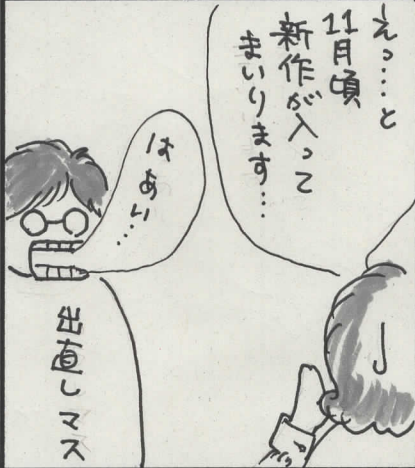 えっ…と
11月頃
新作が入って
まいります…
はあい…
出直しマス